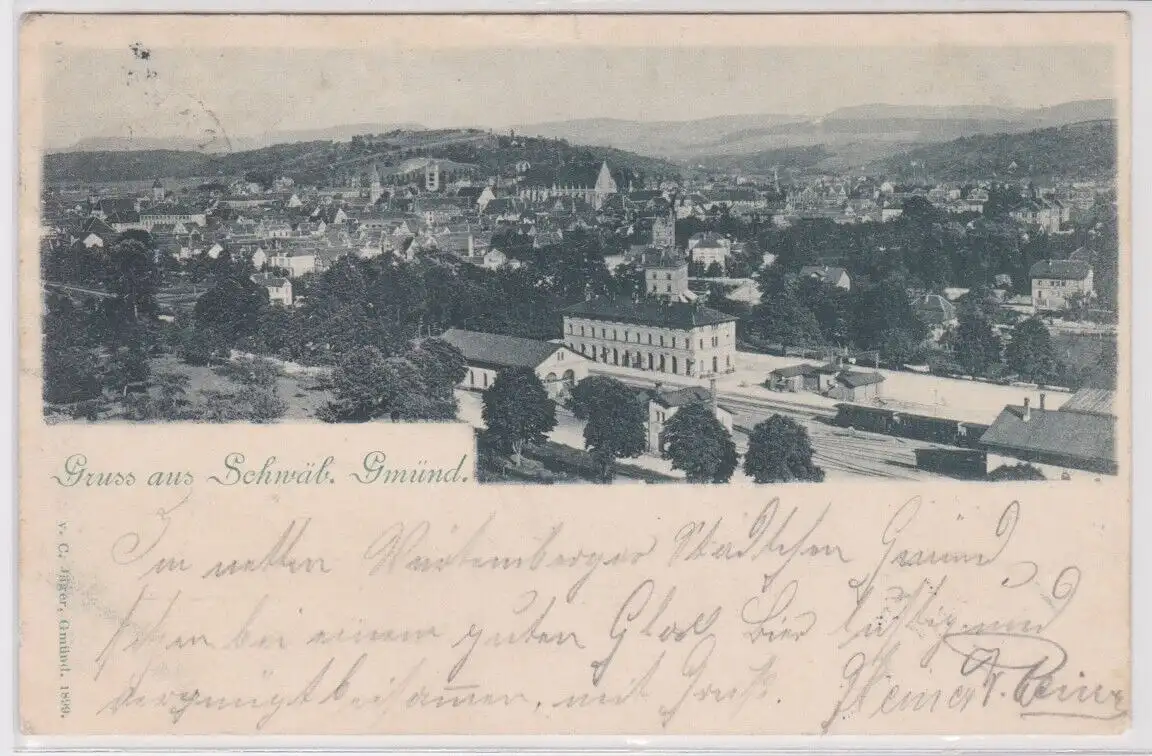 Gruss aus Schwäb. Gmünd.
v. C. Jäger, Gmünd. 1899.
Im netten Würtemberger Städtchen Gmünd
sitzen bei einem guten Glas Bier lustig und
vergnügt beisammen, mit Gruß.